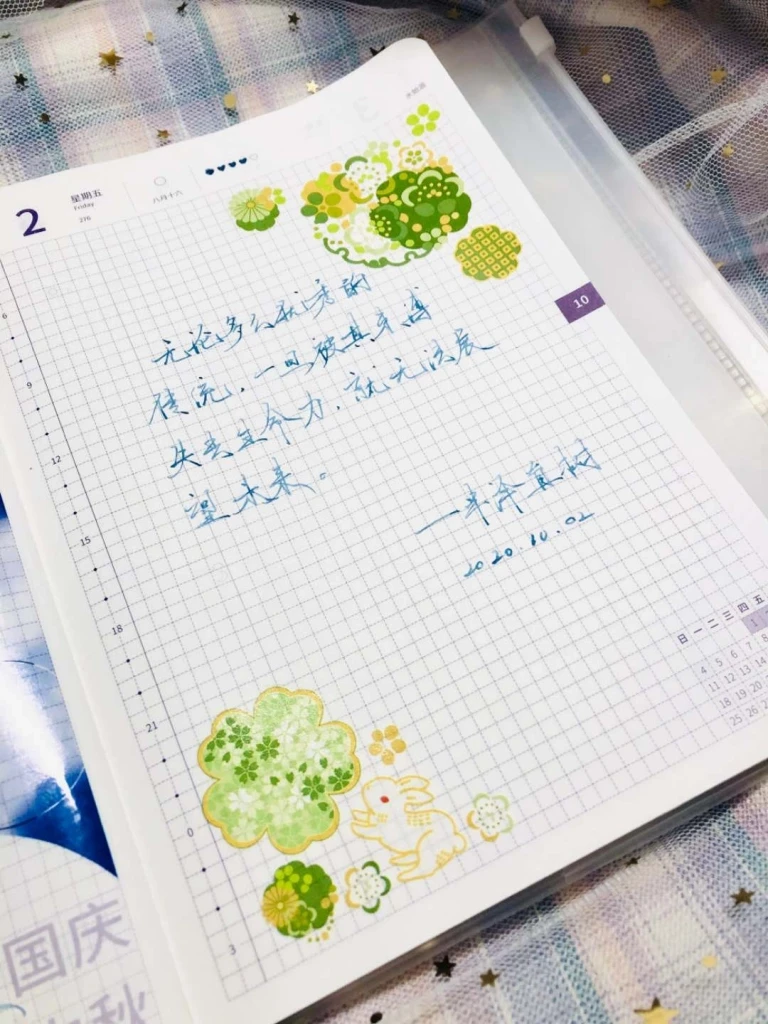 2
星期五
Friday
276
八月十六
水瓶座
10
无论多么优秀的
传统，一旦被其束缚
失去生命力，就无法展
望未来。
一丰泽直树
2020.10.02
6
9
12
15
18
21
0
3
日 一 二 三 四 五
1
4 5 6 7 8
11 12 13 14
18 19 20
25 26
国庆
秋